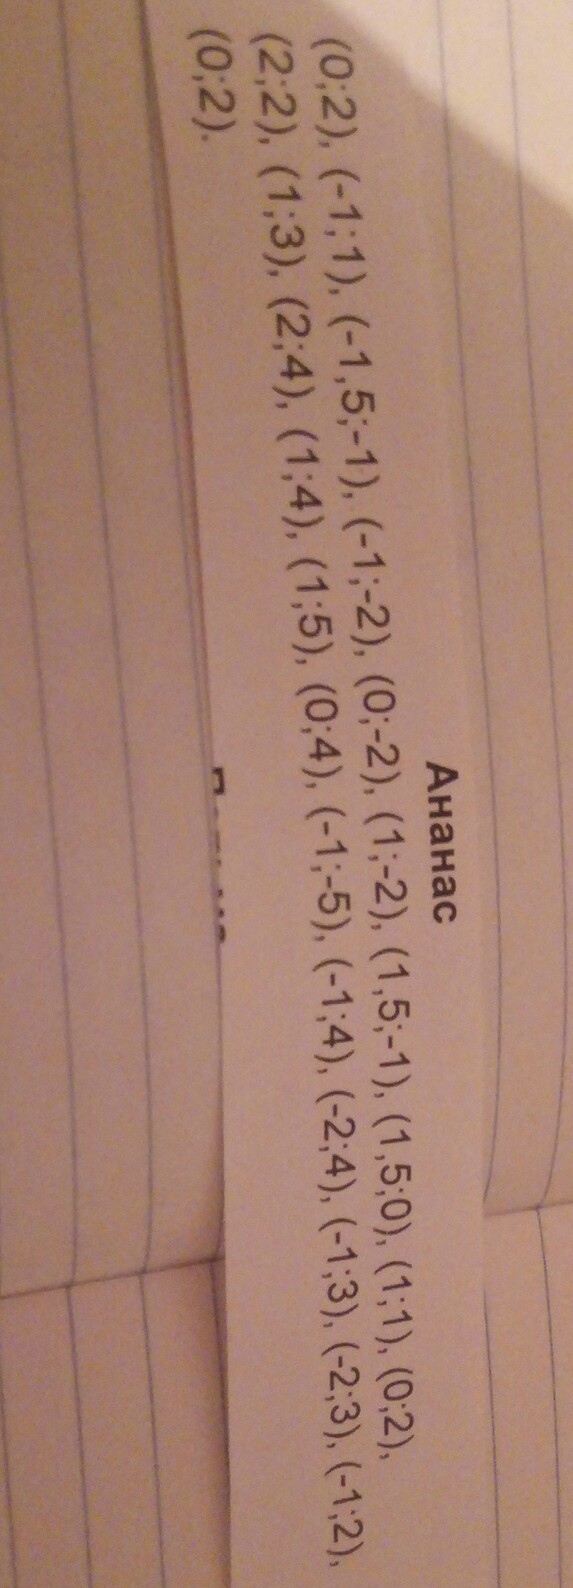 Ананас
(0;2), (-1;1), (-1,5;-1), (-1;-2), (0;-2), (1;-2), (1,5;-1), (1,5;0), (1;1), (0;2),
(2;2), (1;3), (2;4), (1;4), (1;5), (0;4), (-1;-5), (-1;4), (-2;4), (-1;3), (-2;3), (-1;2),
(0;2).